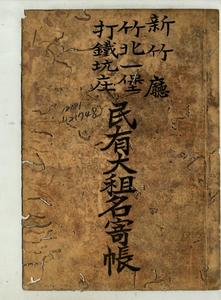 新竹廳
竹北一堡
打鐵坑庄
民有大租名寄帳